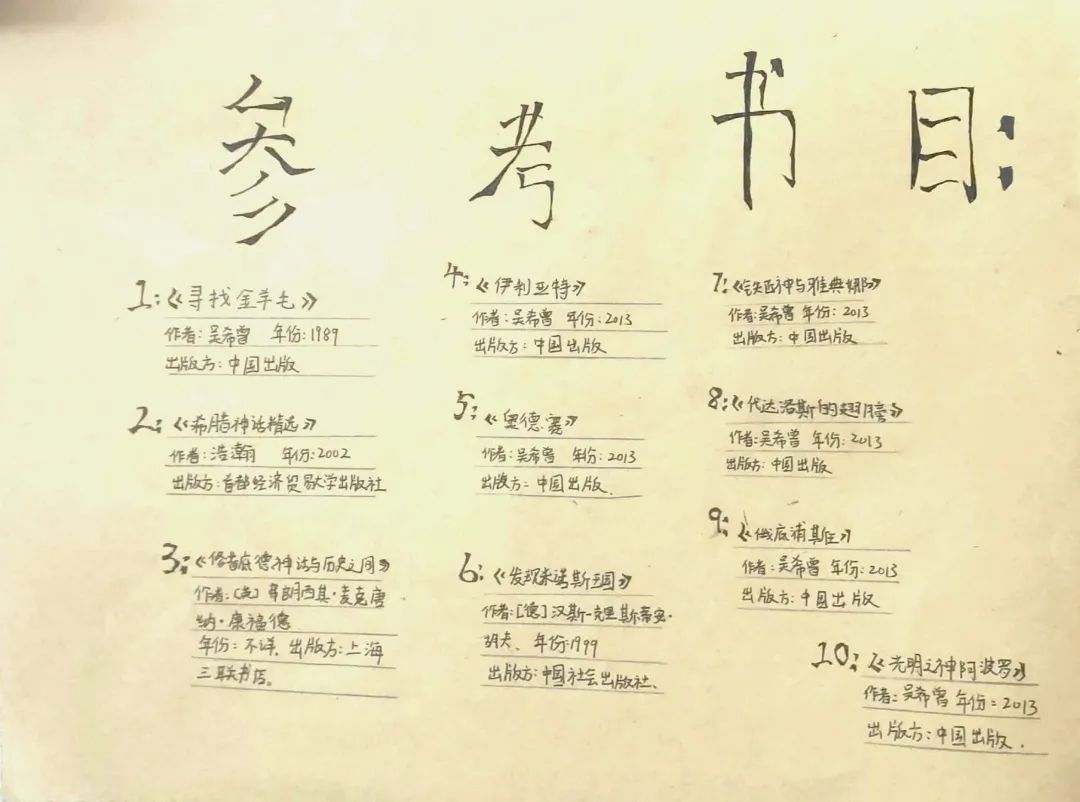 参考书目:
1:《寻找金羊毛》
作者:吴希曾 年份:1989
出版方:中国出版
2:《希腊神话精选》
作者:浩瀚 年份:2002
出版方:首都经济贸易大学出版社
3:《修昔底德神话与历史之间》
作者:(英)弗朗西其·麦克唐
纳·康福德
年份:不详. 出版方:上海
三联书店。
4:《伊利亚特》
作者:吴希曾 年份:2013
出版方:中国出版
5:《奥德赛》
作者:吴希曾 年份:2013
出版方:中国出版.
6:《发现米诺斯王国》
作者:[德]汉斯-克里斯蒂安·
胡夫. 年份:1999
出版方:中国社会出版社.
7:《铁匠神与雅典娜》
作者:吴希曾 年份:2013
出版方:中国出版
8:《代达洛斯的翅膀》
作者:吴希曾 年份:2013
出版方:中国出版
9:《俄底浦斯王》
作者:吴希曾 年份:2013
出版方:中国出版
10:《光明之神阿波罗》
作者:吴希曾 年份:2013
出版方:中国出版.